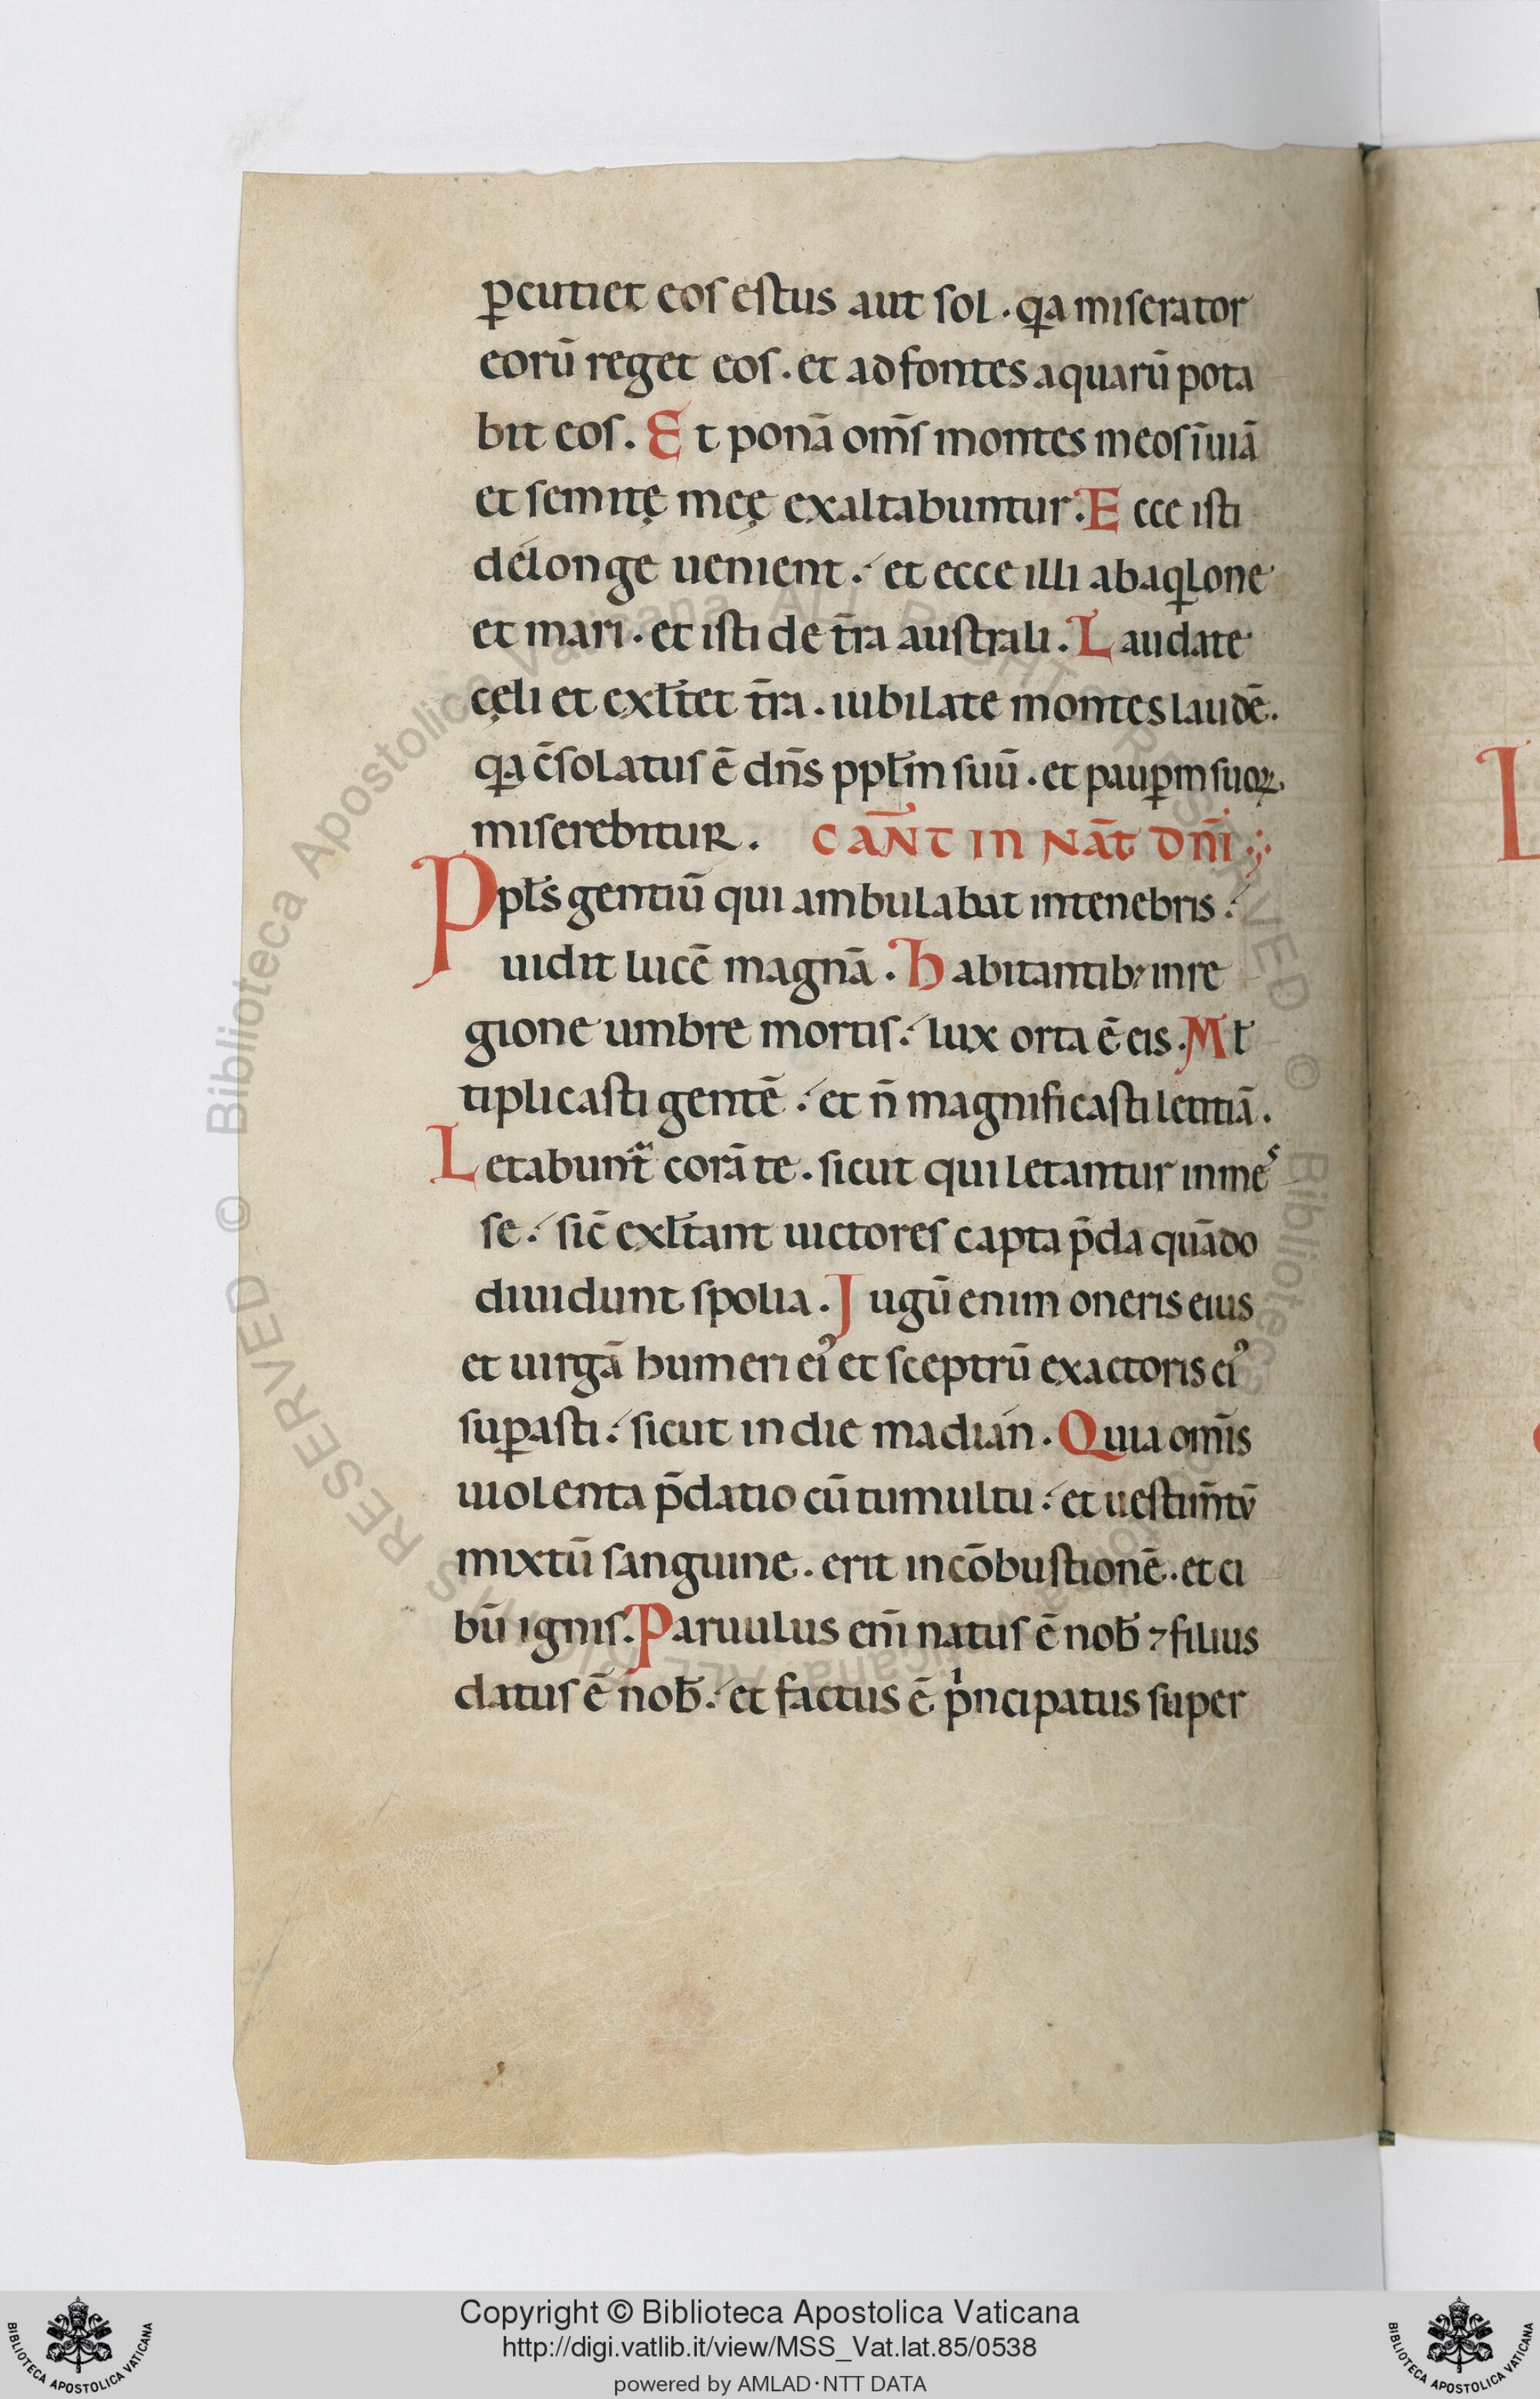 ꝑcutiet eos estus aut sol. q̄a miserator
eorū reget eos. et ad fontes aquarū pota
bit eos. Et ponā om̄s montes meos ī uiā
et semitę meę exaltabuntur. Ecce isti
de longe uenient. et ecce illi ab aq̄lone
et mari. et isti de t̄ra australi. Laudate
cęli et exl̄tet t̄ra. iubilate montes laudē.
q̄a c̄solatus ē dn̄s ppl̄m suū. et pauꝑm suoꝝ
miserebitur. CAN̄T IN NAT̄ DN̄I
Ppl̄s gentiū qui ambulabat in tenebris.
uidit lucē magnā. Habitantibꝰ in re
gione umbre mortis. lux orta ē eis. Ml̄
tiplicasti gentē. et n̄ magnificasti letitiā.
Letabunt̄ corā te. sicut qui letantur in mes
se. sic̄ exl̄tant uictores capta p̄da quādo
diuidunt spolia. Jugū enim oneris eius
et uirgā humeri eiꝰ et sceptrū exactoris eiꝰ
suꝑasti. sicut in die madian. Quia om̄is
uiolenta p̄datio cū tumultu. et uestim̄tū
mixtū sanguine. erit in cōbustionē. et ci
bū ignis. Paruulus eni̅ natus ē nob̄ ⁊ filius
datus ē nob̄. et factus ē pͥncipatus super
Copyright © Biblioteca Apostolica Vaticana
http://digi.vatlib.it/view/MSS_Vat.lat.85/0538
powered by AMLAD·NTT DATA
BIBLIOTECA APOSTOLICA VATICANA
BIBLIOTECA APOSTOLICA VATICANA